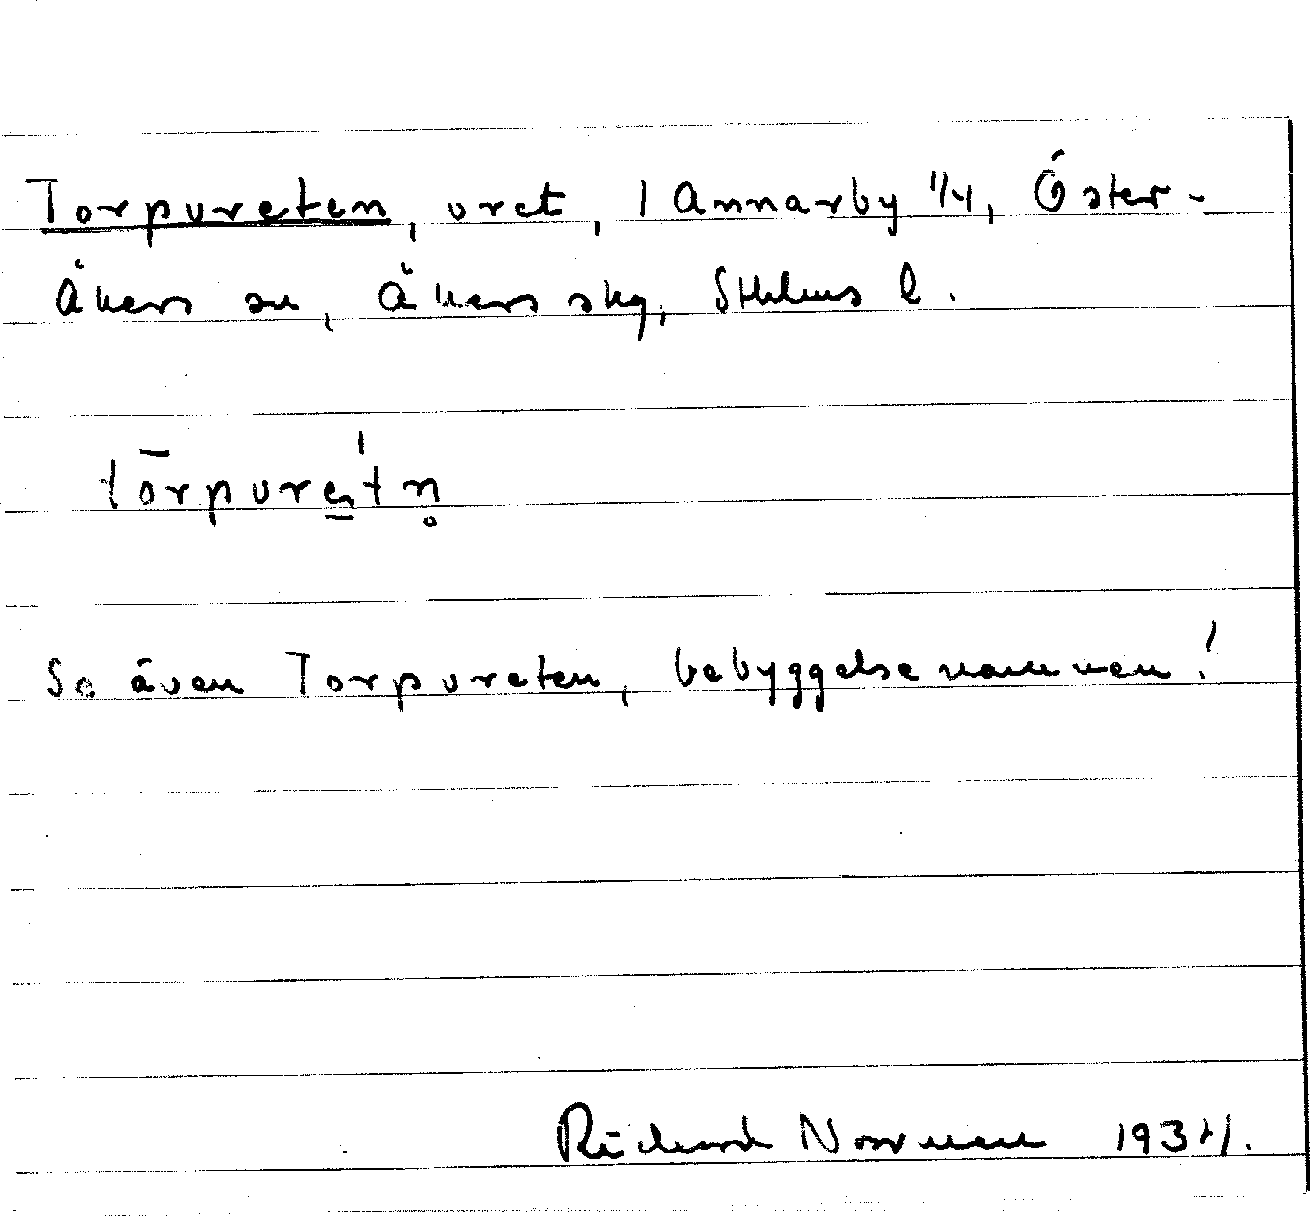 Torpureten, uret, i Annarby 1/4, Öster-
Åkers sn, Åkers skg, Sthlms l.
tōrpure̱ˈtn̥
Se även Torpureten, bebyggelsenamnen!
Rickard Norrman 1934.